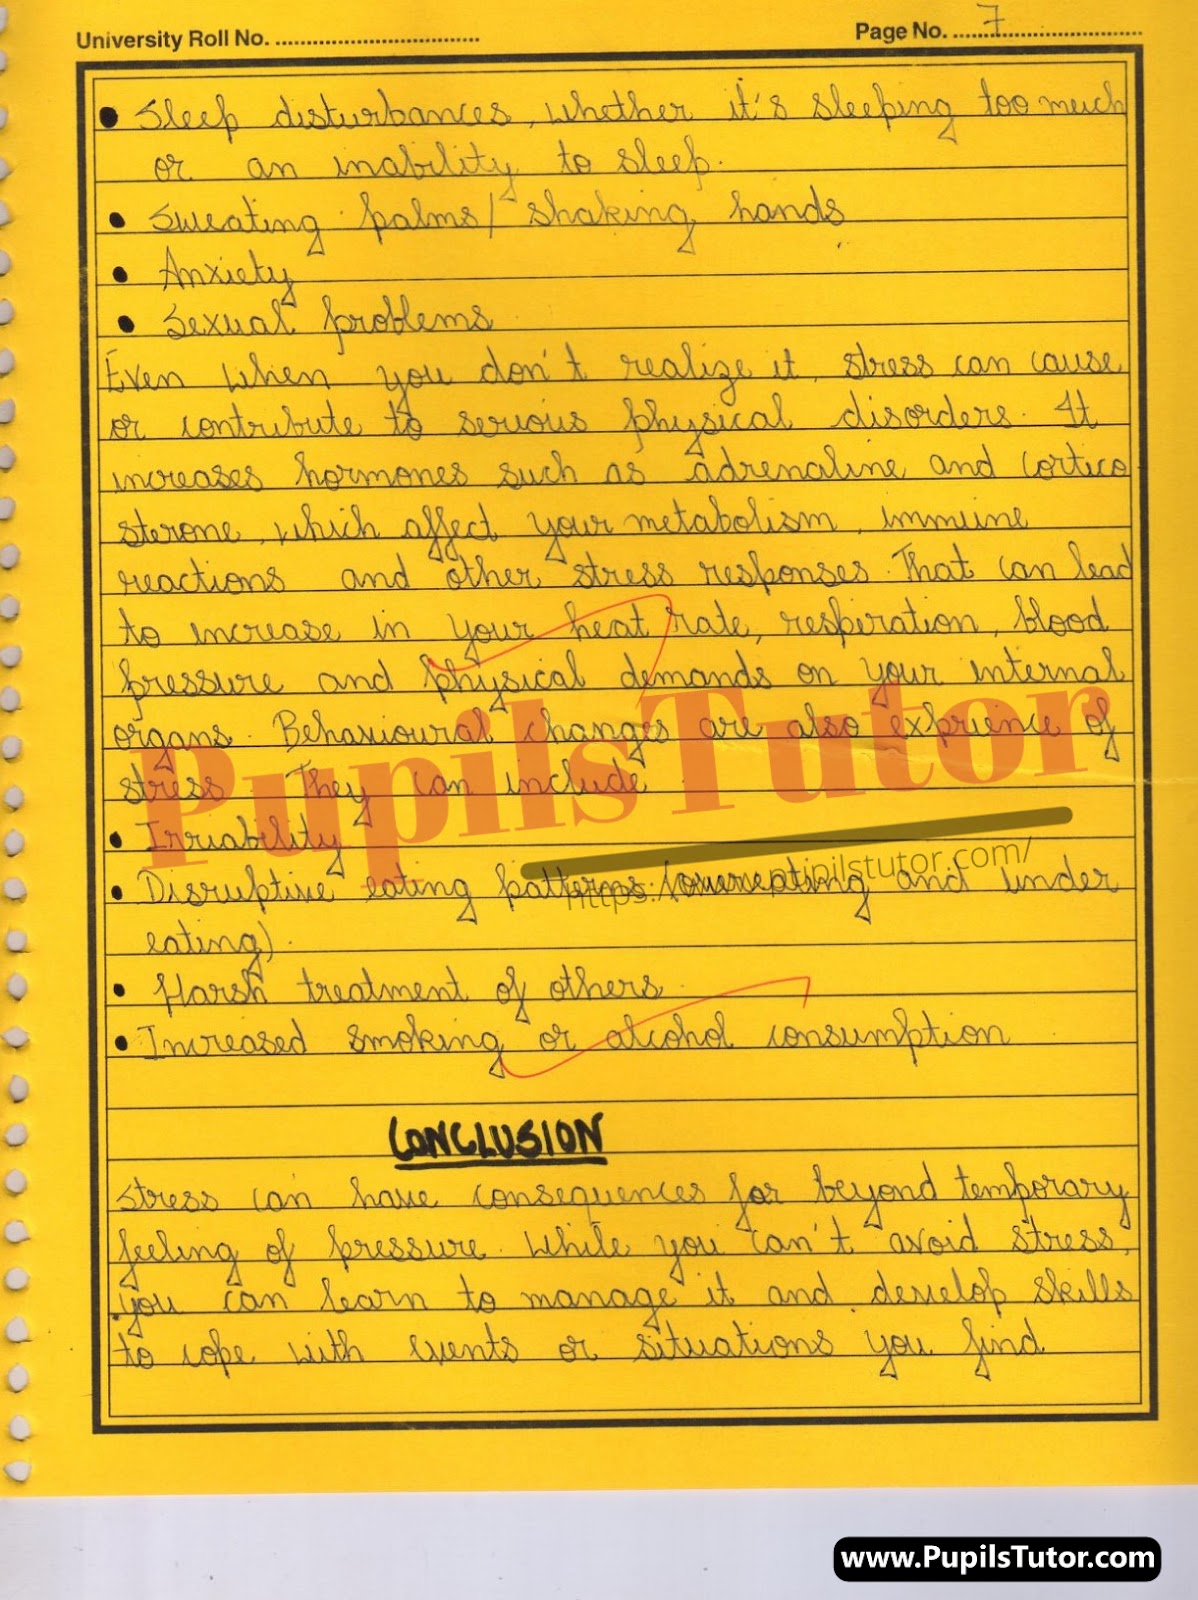 University Roll No. ................................
Page No. ....7........................
• Sleep disturbances, whether it's sleeping too much
or an inability to sleep.
• Sweating palms/ shaking hands
• Anxiety
• Sexual problems
Even when you don't realize it, stress can cause
or contribute to serious physical disorders. It
increases hormones such as adrenaline and cortico
sterone, which affect your metabolism, immune
reactions and other stress responses. That can lead
to increase in your heat rate, respiration, blood
pressure and physical demands on your internal
organs. Behavioural changes are also exprience of
stress. They can include :
PupilsTutor
• Irriability
https://www.pupilstutor.com/
• Disruptive eating patterns (overeating and under
eating).
• Harsh treatment of others.
• Increased smoking or alcohol consumption
CONCLUSION
Stress can have consequences far beyond temporary
feeling of pressure. While you can't avoid stress,
you can learn to manage it and develop skills
to cope with events or situations you find
www.PupilsTutor.com